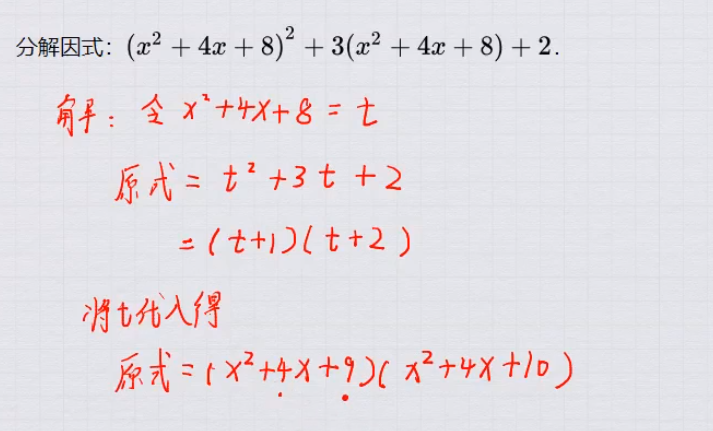 分解因式：(x² + 4x + 8)² + 3(x² + 4x + 8) + 2.
解：令 x²+4x+8 = t
原式 = t² + 3t + 2
= (t+1)(t+2)
将t代入得
原式 = (x²+4x+9)(x²+4x+10)